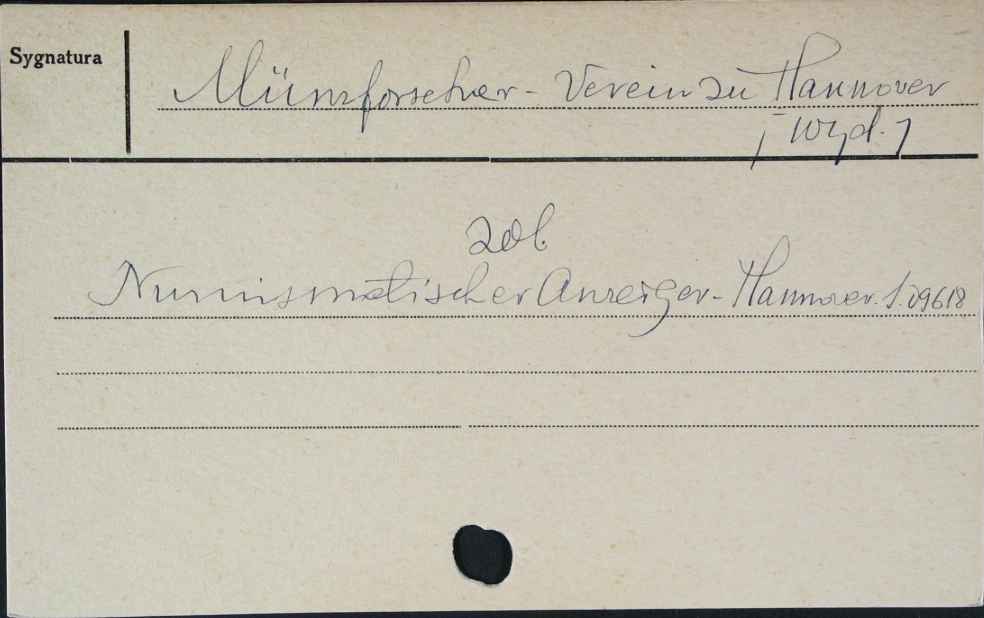 Sygnatura
Münzforscher - Verein zu Hannover
[Wyd.]
zob.
Numismatischer Anzeiger - Hannover. S.